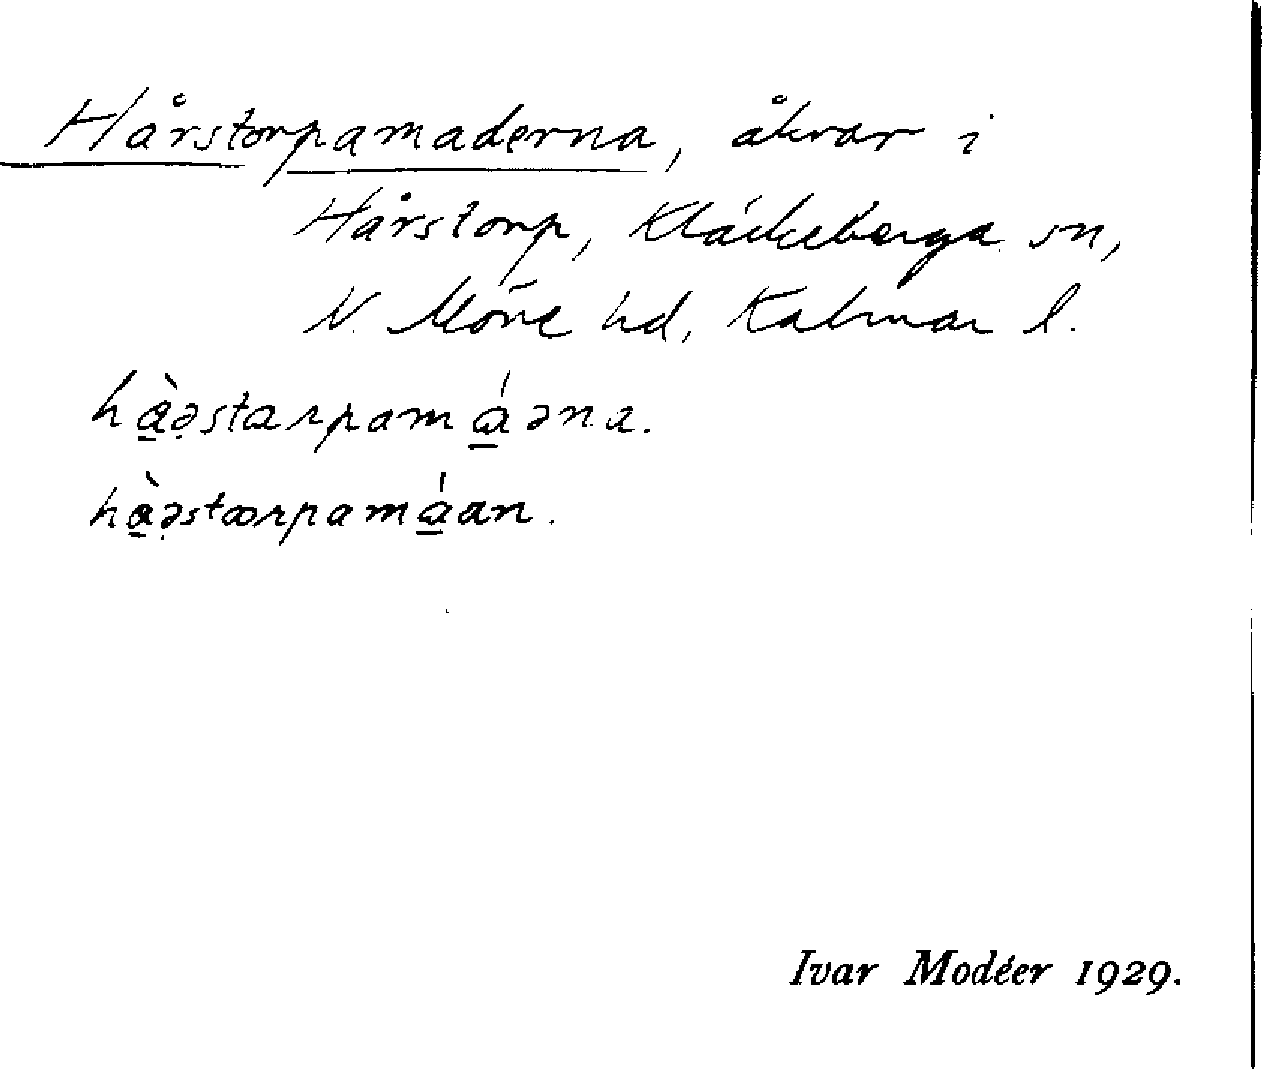 Hårstorpamaderna, åkrar i
Hårstorp, Kläckeberga sn,
N. Möre hd, Kalmar l.
hɑ̠̀ə̣starpamɑ̠́əna.
hɑ̠̀ə̣stœrpamɑ̠́an.
Ivar Modéer 1929.